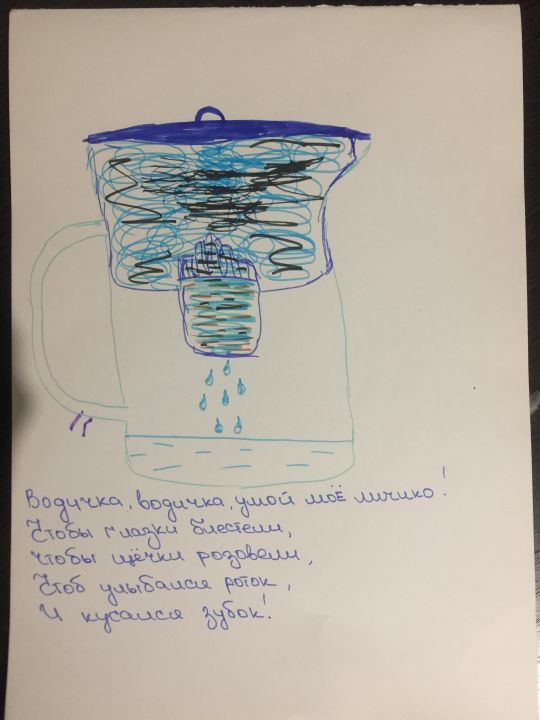 Водичка, водичка, умой моё личико!
Чтобы глазки блестели,
Чтобы щёчки розовели,
Чтоб улыбался роток,
И кусался зубок!